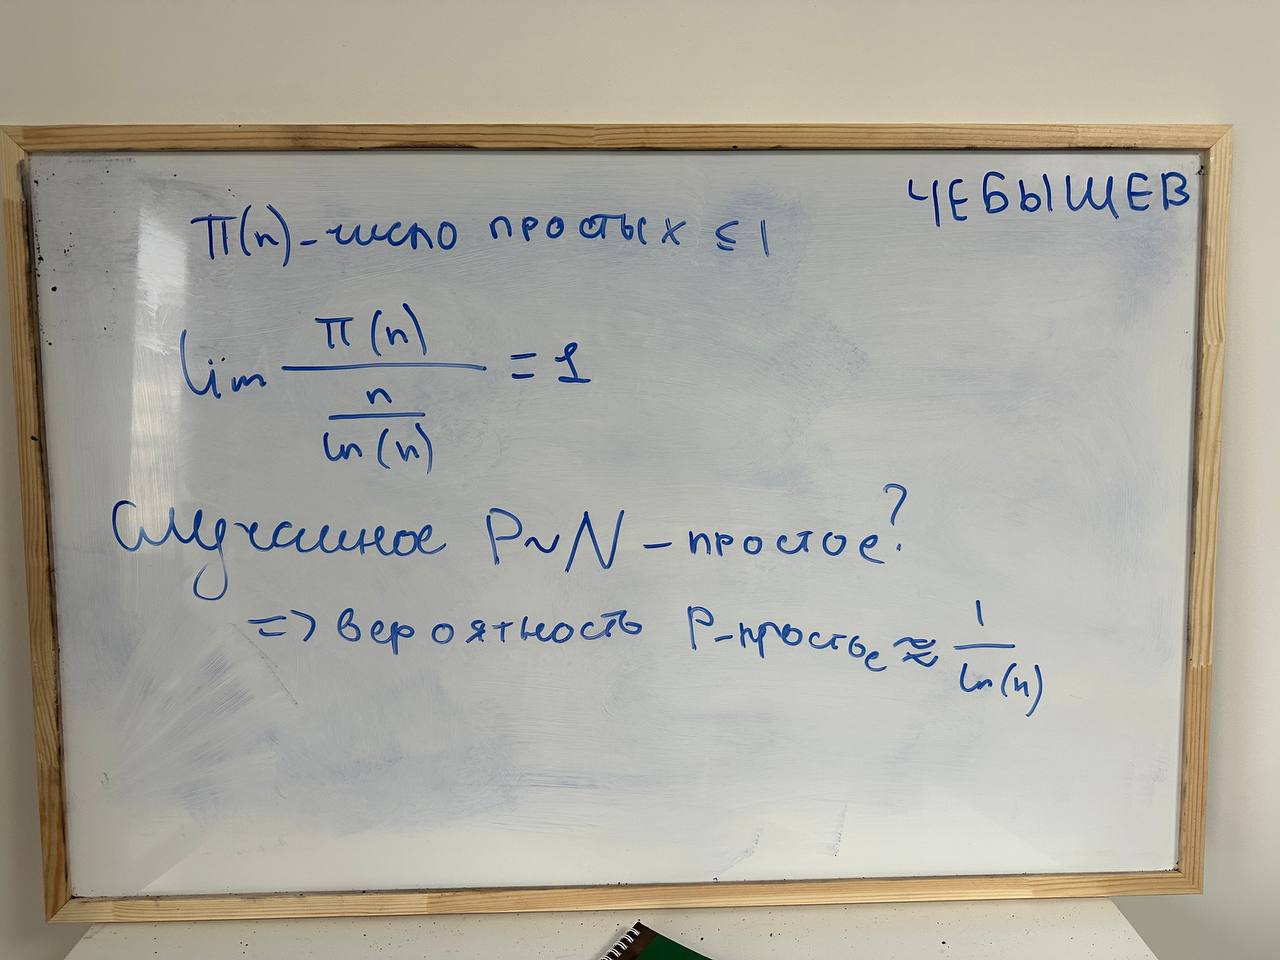 ЧЕБЫШЕВ
π(n) - число простых ≤ 1
lim π(n) / (n / ln(n)) = 1
Случайное P~N - простое?
=> вероятность P-простое ≈ 1 / ln(n)